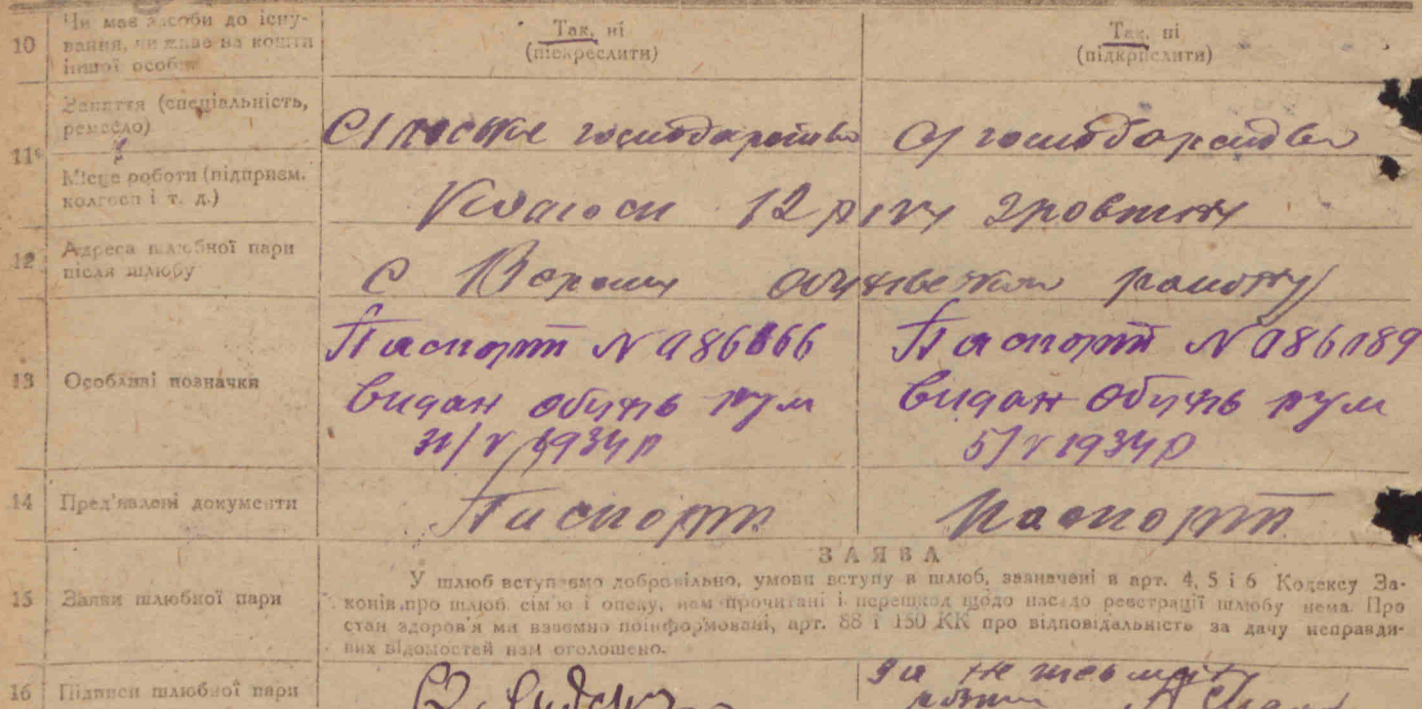 10 Чи має засоби до існу-
вання, чи живе на кошти
іншої особи
Так, ні
(підкреслити)
Так, ні
(підкреслити)
Заняття (спеціальність,
ремесло)
Сільське господарство
С/ господарство
11
Місце роботи (підприєм.
колгосп і т. д.)
12 річчя Жовтня
12 Адреса шлюбної пари
після шлюбу
С району
13 Особливі позначки
Паспорт N 086866
видан
/V 1934р
Паспорт N 086189
видан
5/V 1934р
14 Пред'явлені документи
Паспорт
Паспорт
15 Заяви шлюбної пари
ЗАЯВА
У шлюб вступаємо добровільно, умови вступу в шлюб, зазначені в арт. 4, 5 і 6 Кодексу За-
конів про шлюб, сім'ю і опеку, нам прочитані і перешкод щодо нас до реєстрації шлюбу нема. Про
стан здоров'я ми взаємно поінформовані, арт. 88 і 150 КК про відповідальність за дачу неправди-
вих відомостей нам оголошено.
16 Підписи шлюбної пари
За